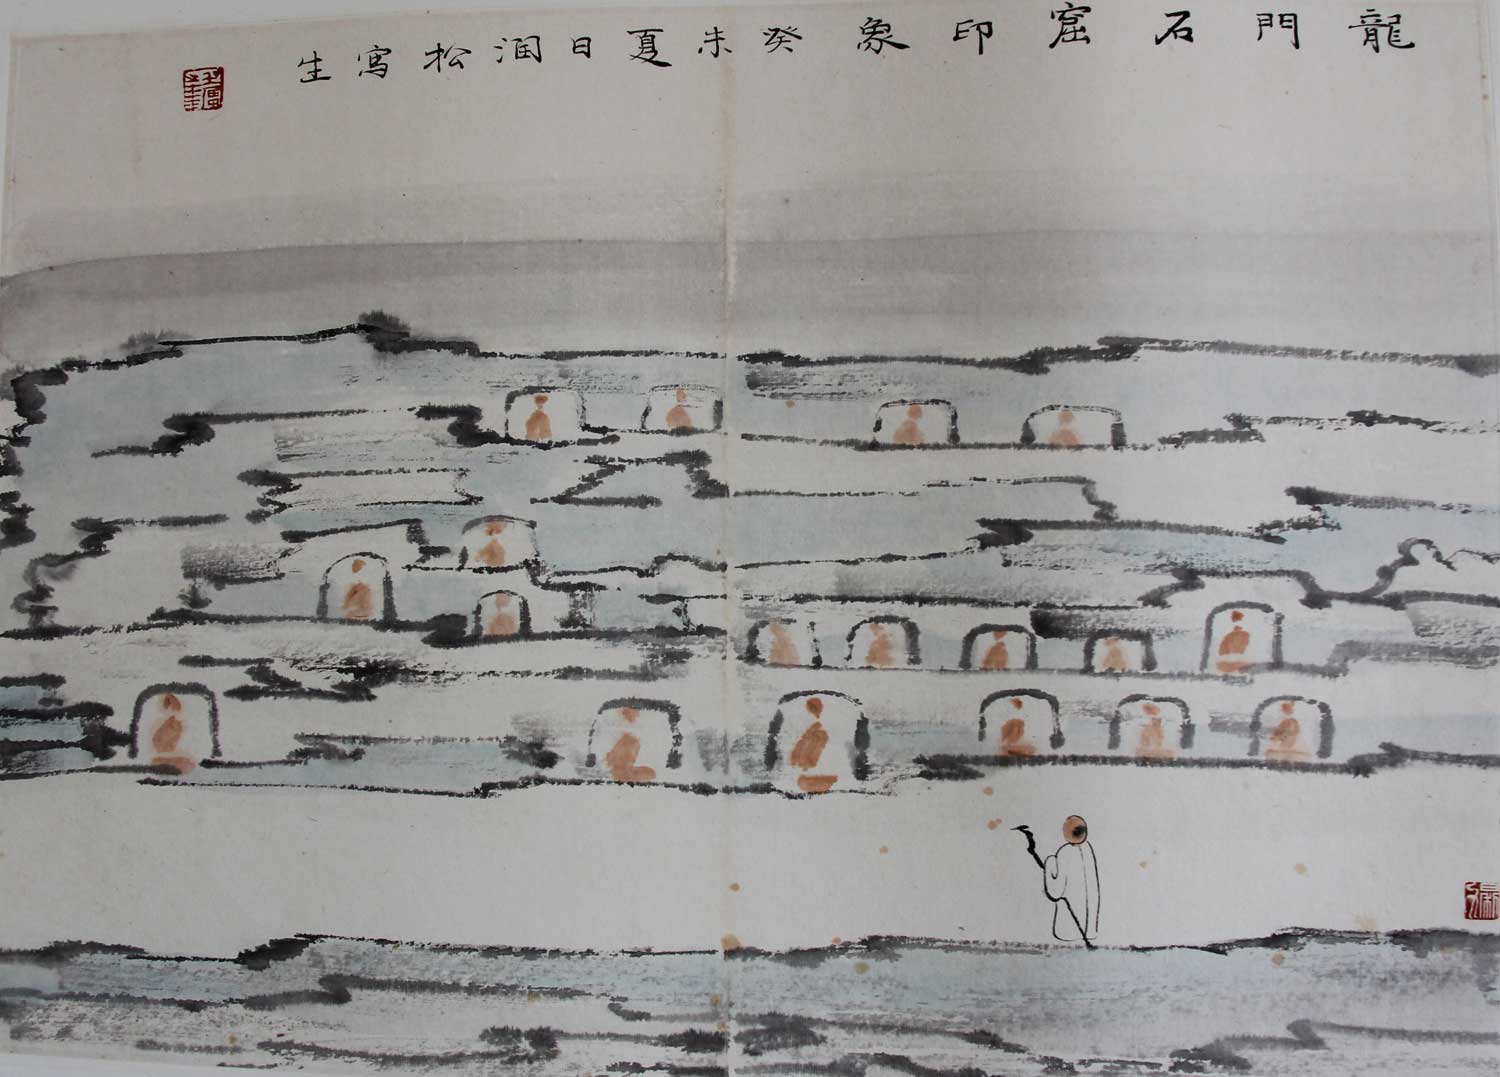 龍門石窟印象癸未夏日潤松寫生